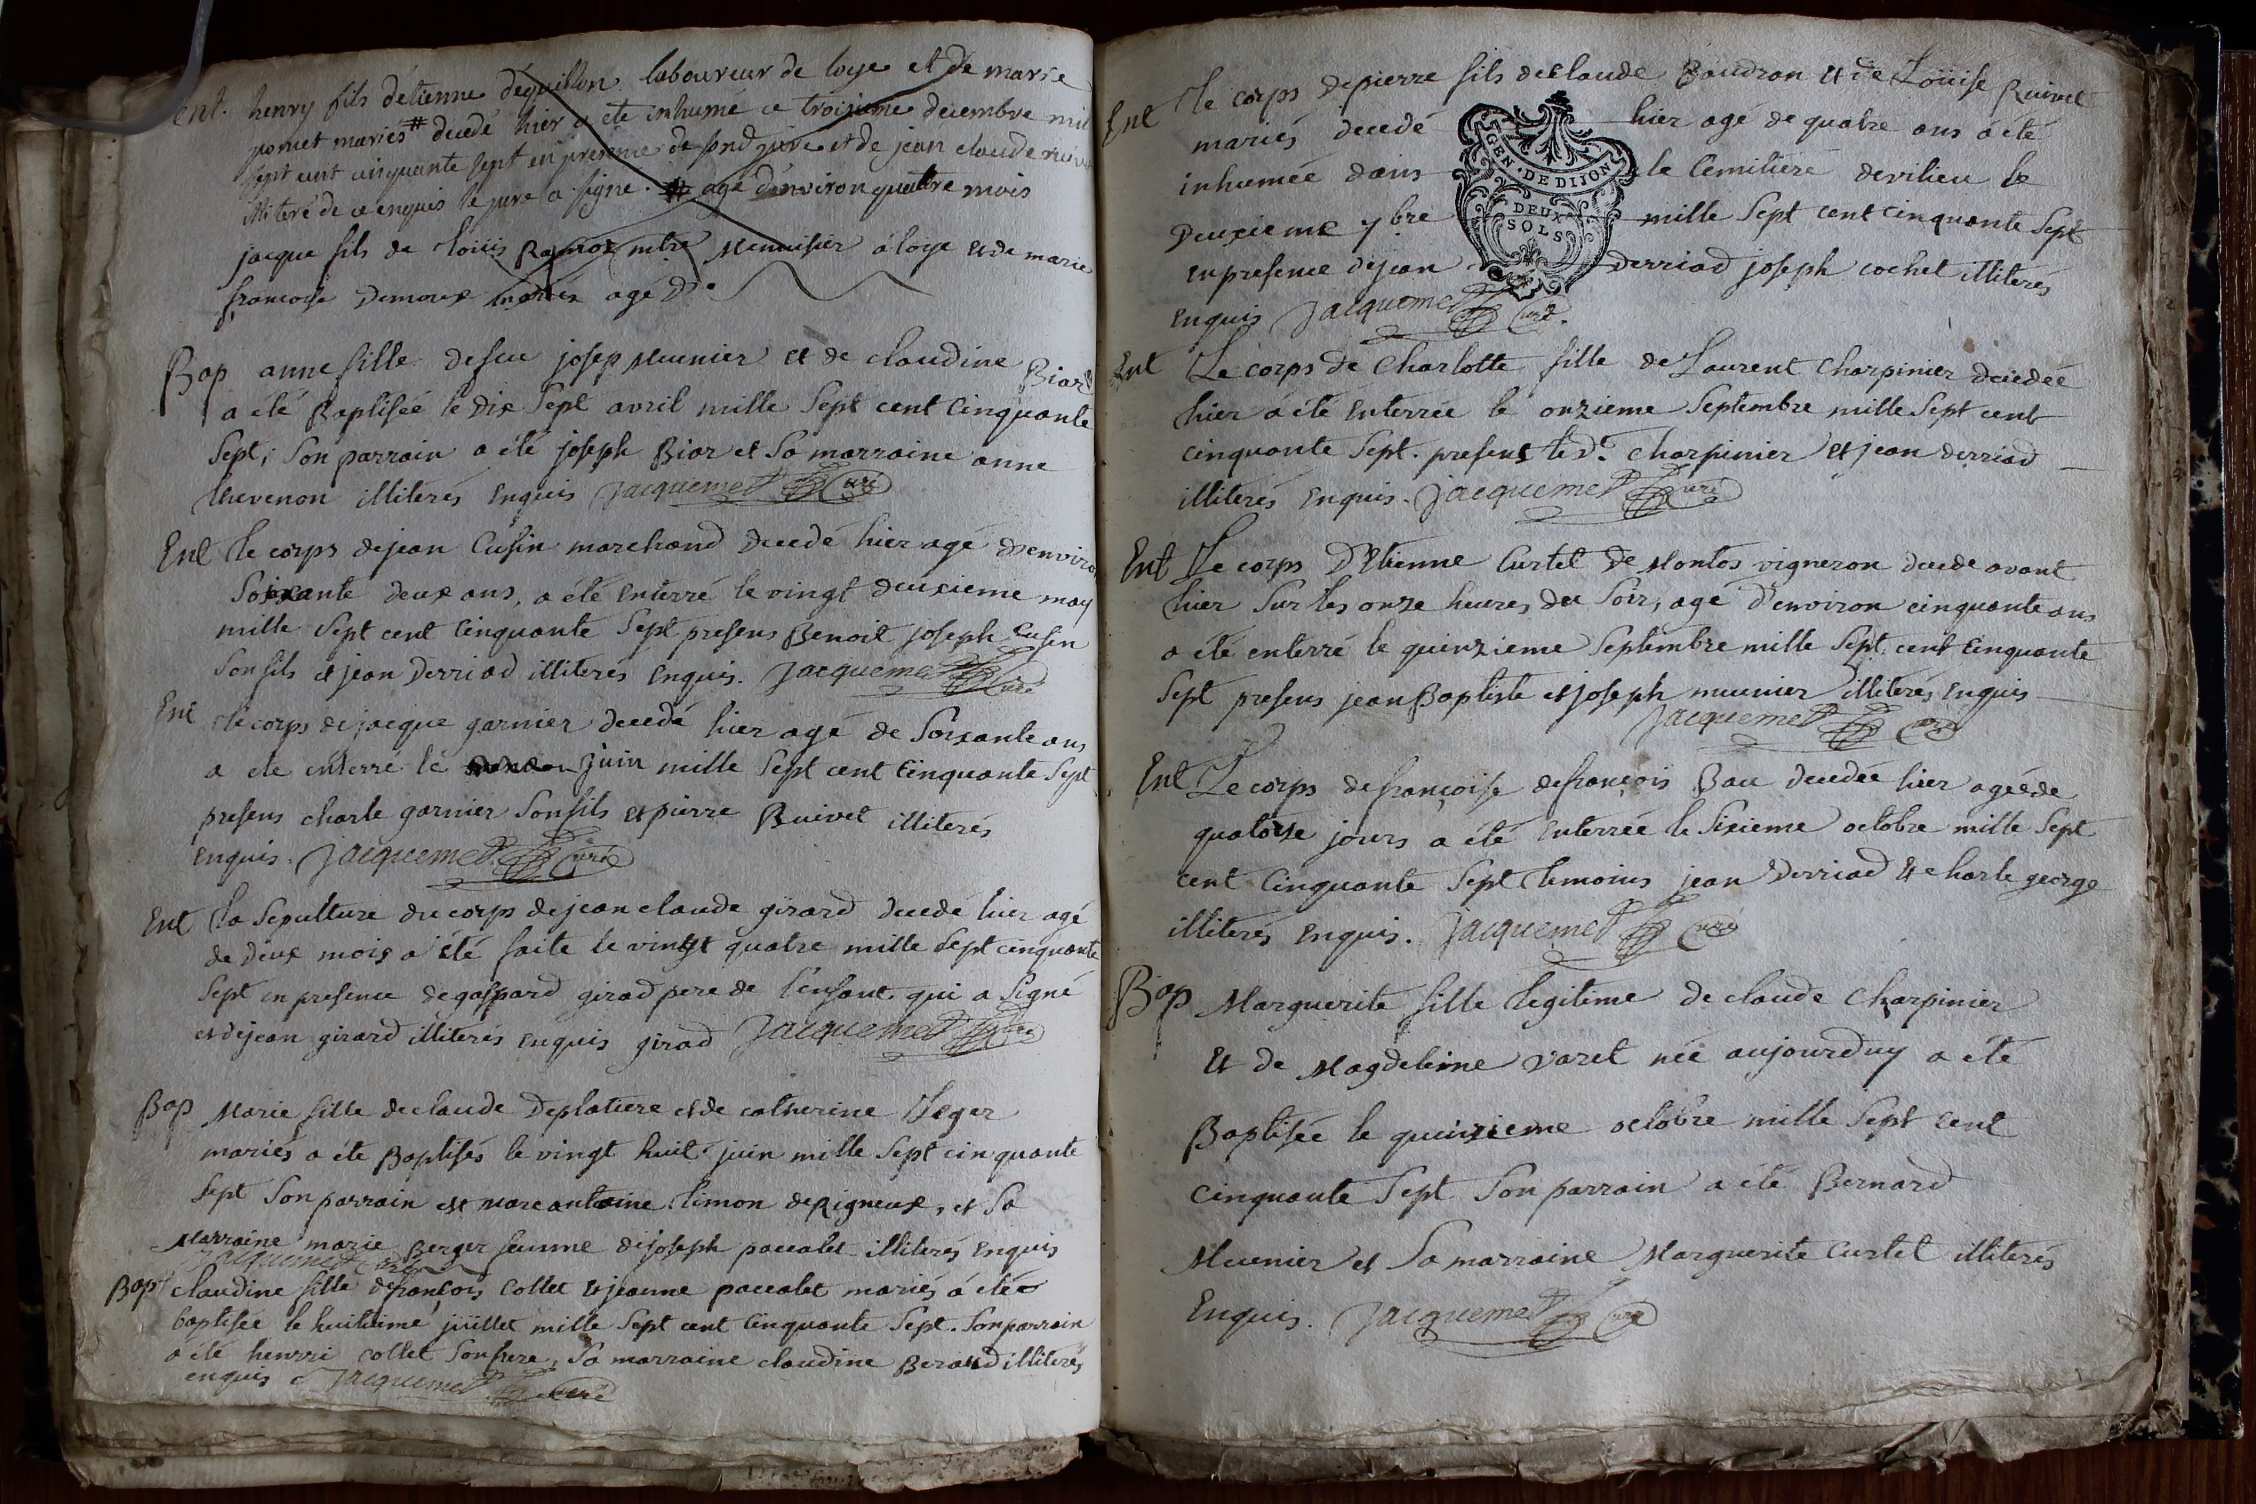 Ent. henry fils détienne déquillon laboureur de loye et de marie
pomet mariés # decedé hier a été inhumé ce troisieme decembre mil
sept cent cinquante sept en presence de et de jean claude
illiteré de ce enquis le jure a signe. # agé d'environ quatre mois
jacque fils de loüis mtre Menuisier à loye et de marie
francoise Demoux mariés agé de
Bap anne fille de feu josep Meunier et de claudine Biar
a été Baptisée le dix Sept avril mille Sept cent Cinquante
Sept, Son parrain a été joseph Biar et Sa marraine anne
thevenon illiterés Enquis Jacquemet Curé
Ent le corps de jean Cusin marchand decedé hier agé d'environ
Soixante deux ans, a été Enterré le vingt deuxieme may
mille Sept cent Cinquante Sept presens Benoit joseph Cusin
Son fils et jean Derriad illiterés Enquis. Jacquemet Curé
Ent le corps de jacque garnier decedé hier agé de Soixante ans
a été enterré le juin mille Sept cent Cinquante Sept
presens charle garnier Son fils et pierre Ruivet illiterés
Enquis. Jacquemet Curé
Ent la Sepulture du corps de jean claude girard decedé hier agé
de deux mois a été faite le vingt quatre mille Sept cinquante
Sept en presence de gaspard girad pere de l'enfant qui a Signé
et de jean girard illiterés enquis girad Jacquemet Curé
Bap Marie fille de claude Deplatiere et de catherine
mariés a été Baptisés le vingt huit juin mille Sept cinquante
Sept Son parrain est marc antoine timon de Rigneux, et Sa
Marraine marie Berger femme de joseph paccalet illiterés Enquis
Jacquemet Curé
Bap claudine fille de francois Collet et jeanne paccalet mariés a été
baptisée le huitieme juillet mille Sept cent Cinquante Sept. Son parrain
a été henrri collet Son frere, Sa marraine claudine Beraud illiterés
enquis Jacquemet Curé
Ent le corps de pierre fils de claude Baudran et de Loüise Ruivet
mariés decedé hier agé de quatre ans a été
inhumée dans le Cemitiere de rilieu le
Deuxieme 7bre mille Sept cent Cinquante Sept
en presence de jean Derriad joseph cochet illiterés
Enquis Jacquemet Curé.
GEN. DE DIJON
DEUX
SOLS
Ent Le corps de Charlotte fille de Laurent Charpinier decedée
hier a été Enterrée le onzieme Septembre mille Sept cent
cinquante Sept. presens le d. Charpinier et jean derriad
illiterés Enquis. Jacquemet Curé
Ent Le corps D'Etienne Curtet de Montos vigneron decede avant
hier Sur les onze heures du Soir, agé d'environ cinquante ans
a été enterré le quinzieme Septembre mille Sept cent Cinquante
Sept presens jean Baptiste et joseph meunier illiterés Enquis
Jacquemet Curé
Ent Le corps de françoise de françois Bau decedée hier agée de
quatorse jours a été Enterrée le Sixieme octobre mille Sept
cent Cinquante Sept temoins jean Derriad et charle george
illiterés Enquis. Jacquemet Curé
Bap Marguerite fille legitime de claude Charpinier
et de Magdeleine varet née aujourduy a été
Baptisée le quinzieme octobre mille Sept cent
Cinquante Sept Son parrain a été Bernard
Meunier et Sa marraine Marguerite Curtet illiterés
Enquis. Jacquemet Curé